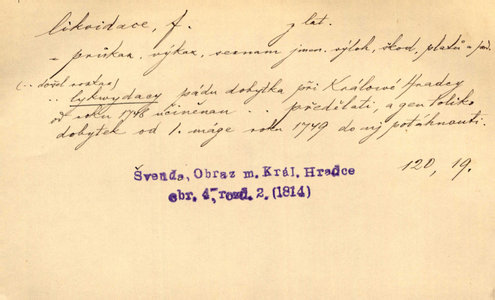 likvidace, f. z lat.
= průkaz, výkaz, seznam jmen. výloh, škod, platů a pod.
(.. došel rozkaz)
.. lykwydacy pádu dobytka při Králowé Hradcy
od roku 1748 učiněnau .. předělati, a gen toliko
dobytek od 1. máge roku 1749 do nj potáhnauti.
120, 19.
Švenda, Obraz m. Král. Hradce
obr. 4, rozd. 2. (1814)